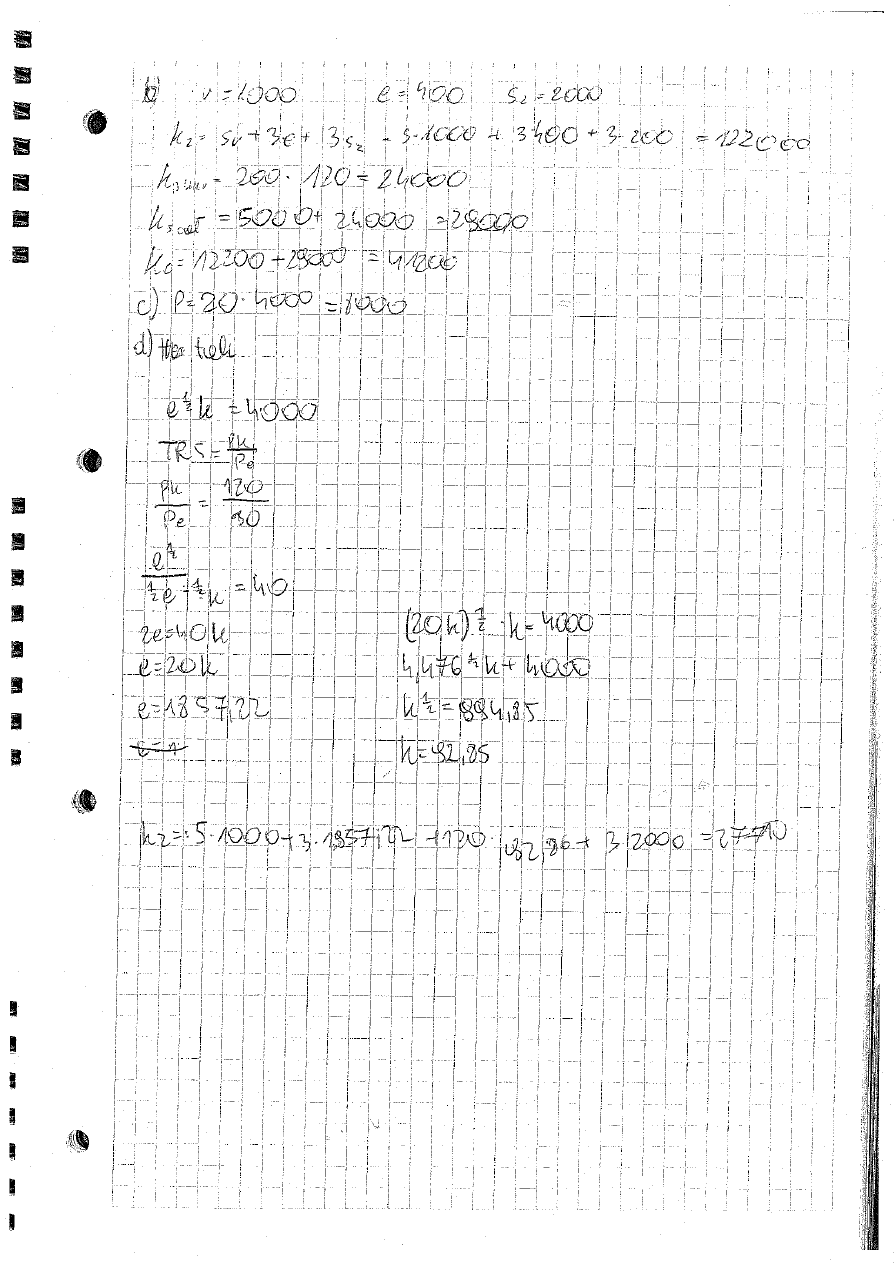 b) v = 1000 e = 400 s₂ = 2000
k₂ = 5v + 3e + 3s₂ = 5·1000 + 3 400 + 3·200 = 122000
= 200 · 120 = 24000
= 5000 + 24000 = 29000
= 12200 + 29000 = 41200
c) P = 20 · 4000 = 8000
d)
e^½ k = 4000
TRS = pk/pe
pk/pe = 120/30
e^½ / ½e^-½ k = 40
2e = 40k (20k)^½ · k = 4000
e = 20k 4,476^½ k + 4000
e = 1857,22 k^½ = 894,85
k = 92,85
k₂ = 5·1000 + 3·1857,22 + 120·92,86 + 3 2000 = 27710